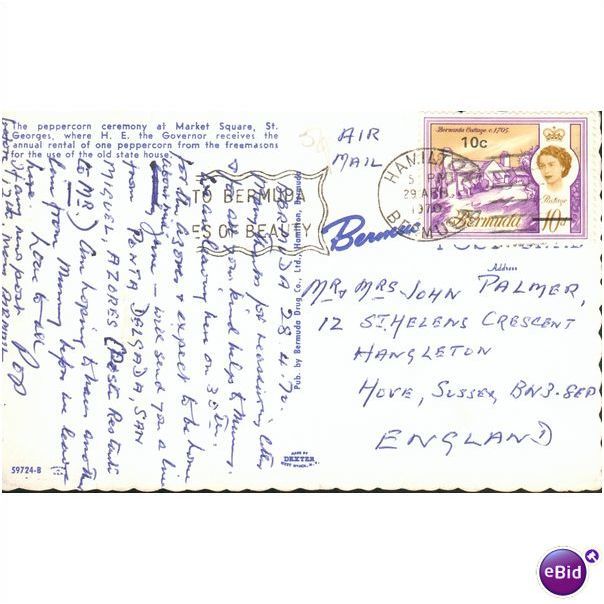 The peppercorn ceremony at Market Square, St.
Georges, where H. E. the Governor receives the
annual rental of one peppercorn from the freemasons
for the use of the old state house.
AIR
MAIL
Bermuda Cottage c.1705
10c
Postage
Bermuda
10d
HAMILTON
29 APR
1970
BERMUDA
TO BERMUDA
ES OF BEAUTY
Bermuda
Address
MR & MRS JOHN PALMER,
12 ST. HELENS CRESCENT
HANGLETON
HOVE, SUSSEX, BN3-8EP
ENGLAND
Pub. by Bermuda Drug Co., Ltd., Hamilton, Bermuda
MADE BY
DEXTER
WEST NYACK, N.Y.
59724-B
BERMUDA 28.4.70.
Many thanks for reassuring letter
& for all your kind help to Mummy.
We are leaving here on 30th
for the Azores & expect to be home
June - will send you a line
from PONTA DELGADA, SAN
MIGUEL, AZORES (Poste Restante
to MR.) Am hoping to hear another
from Mummy before we leave
here. Love to all
POP
eBid